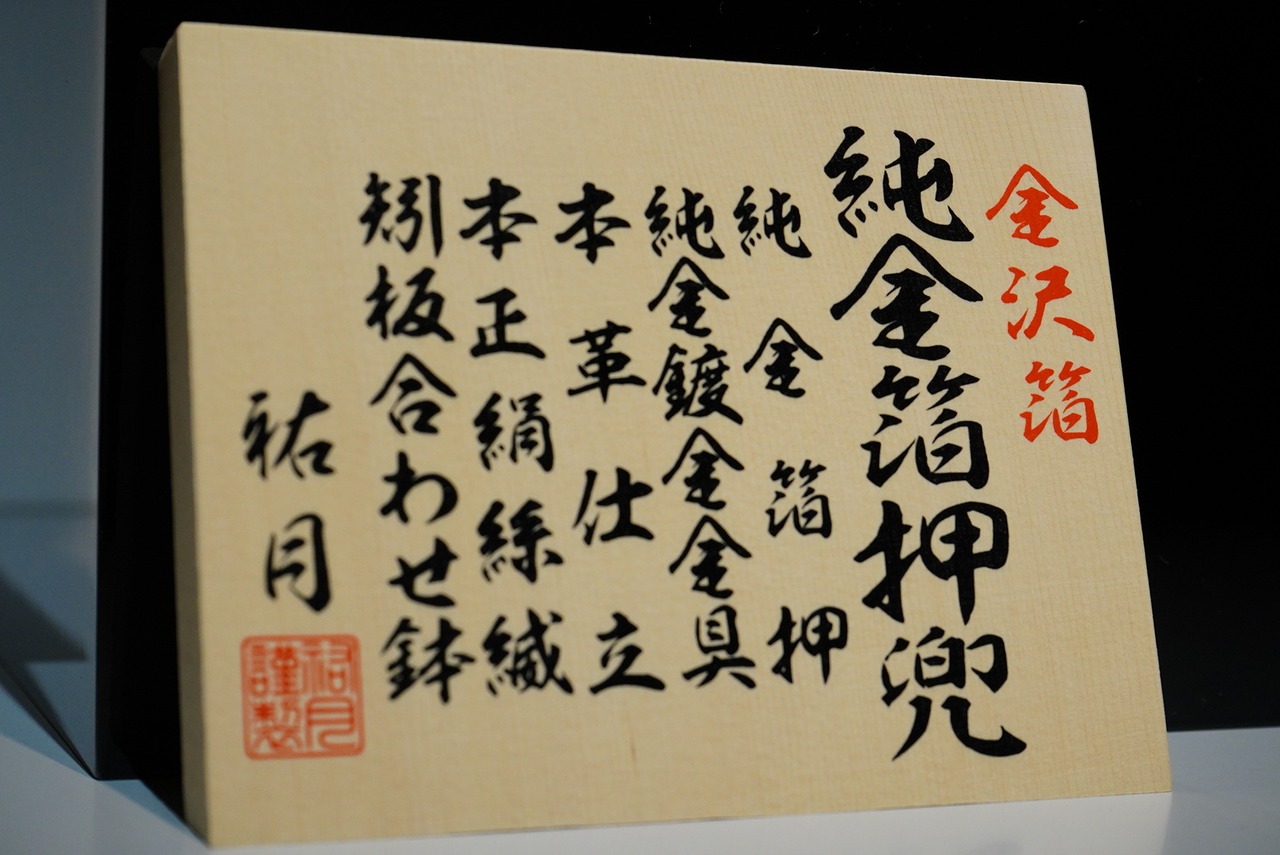 金沢箔
純金箔押兜
純金箔押
純金鍍金金具
本革仕立
本正絹絲縅
矧板合わせ鉢
祐月
祐月
謹製